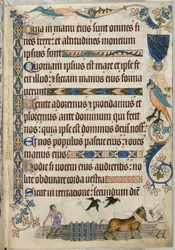 Quia in manu eius sunt omnes fi
nes terre: et altitudines montium
ipsius sunt
Quoniam ipsius est mare et ipse fe
cit illud: et siccam manus eius forma
uerunt
Uenite adoremus et procidamus et
ploremus ante dominum qui fecit
nos: quia ipse est dominus deus noster
Et nos populus pascue eius: et oues
manus eius
Hodie si uocem eius audieritis: no
lite obdurare corda uestra
Sicut in irritatione: secundum diem